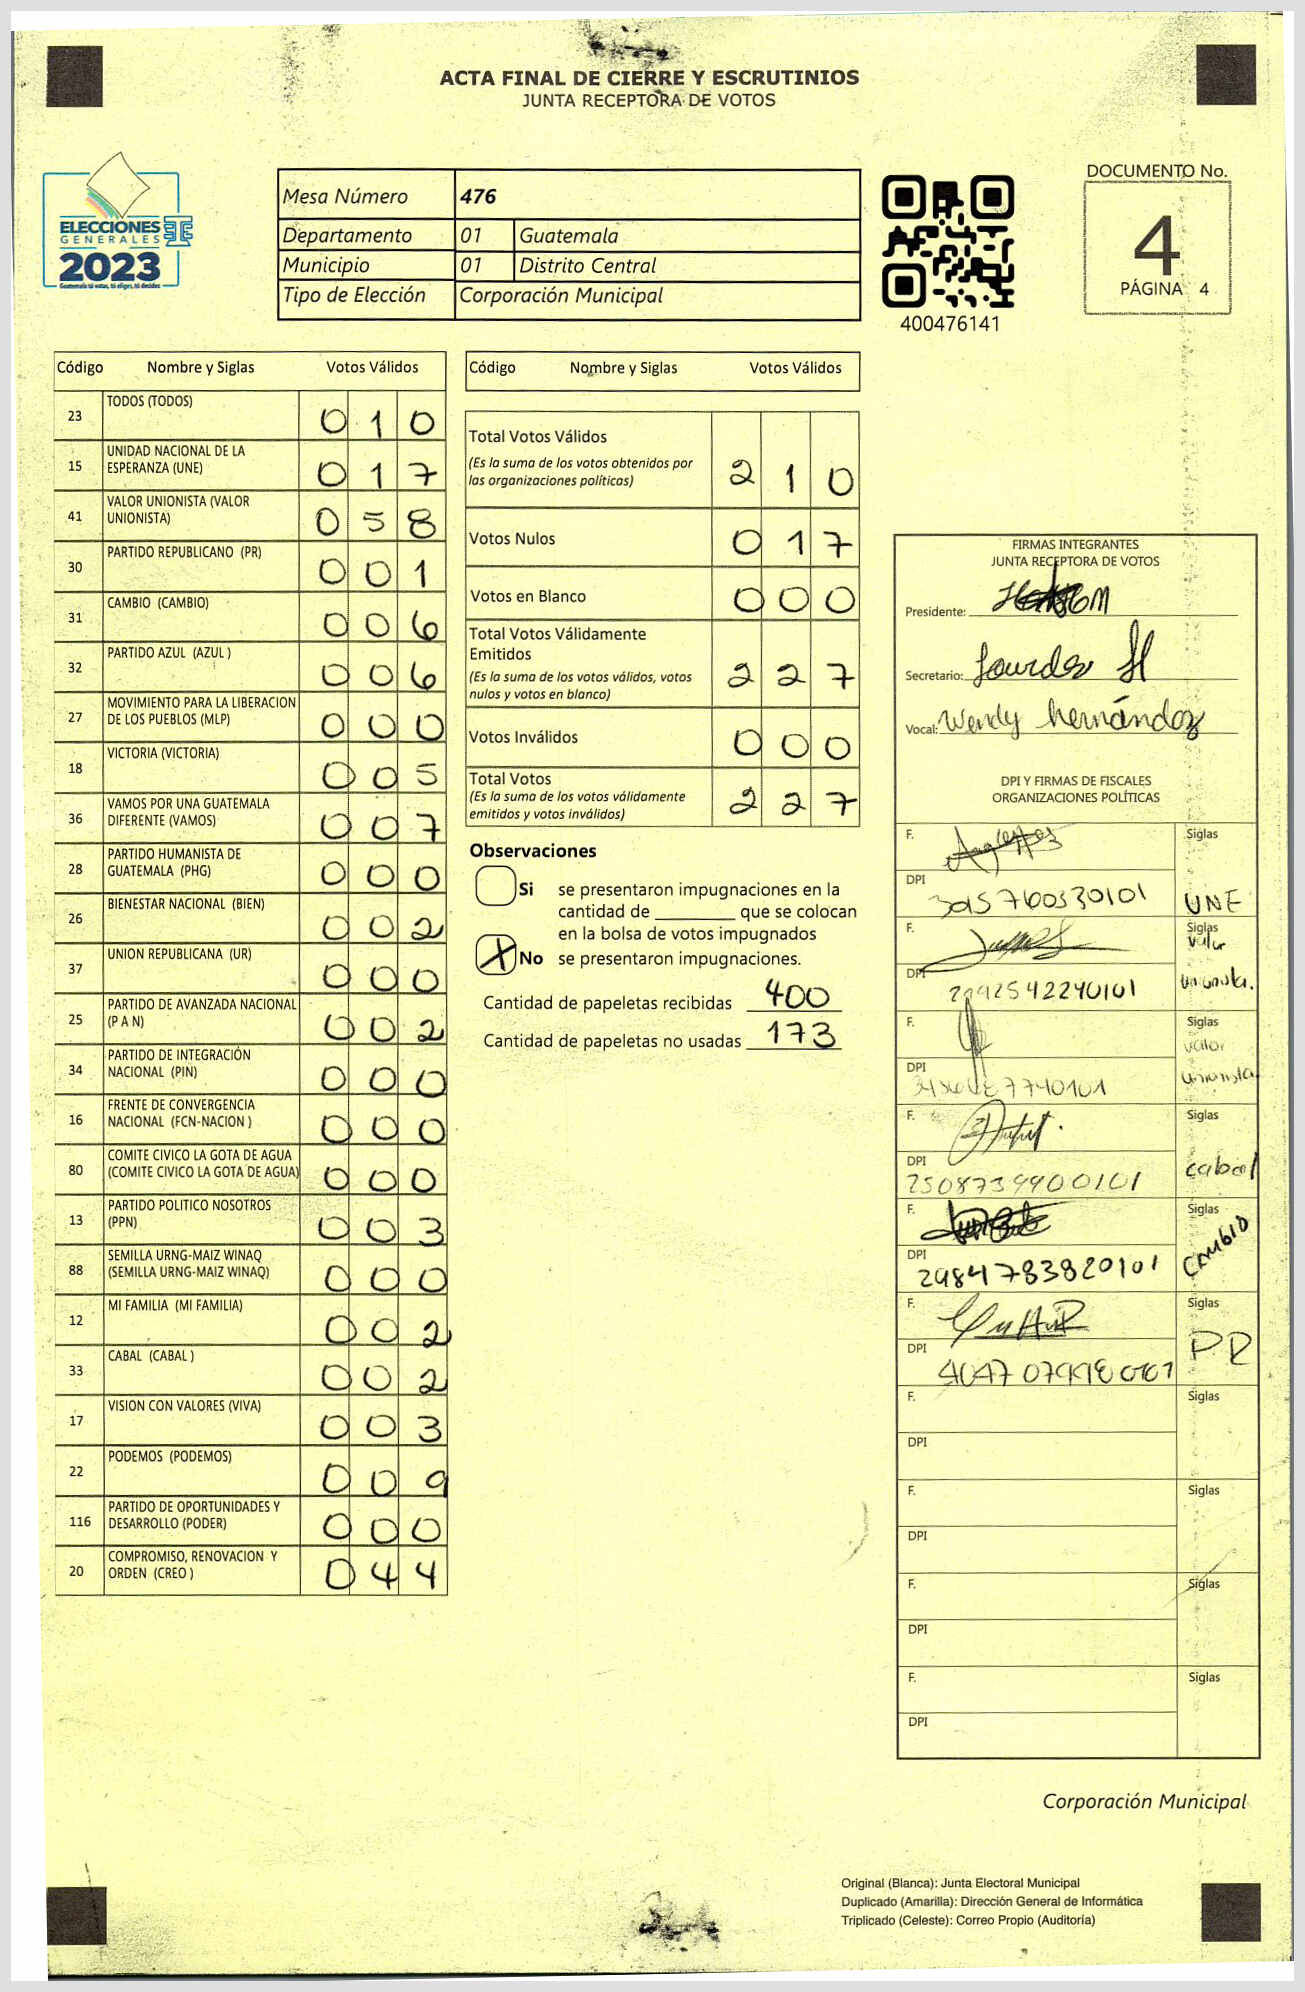 ACTA FINAL DE CIERRE Y ESCRUTINIOS
JUNTA RECEPTORA DE VOTOS
ELECCIONES
GENERALES
2023
Guatemala tú votas, tú eliges, tú decides
Mesa Número 476
Departamento 01 Guatemala
Municipio 01 Distrito Central
Tipo de Elección Corporación Municipal
400476141
DOCUMENTO No.
4
PÁGINA 4
Código Nombre y Siglas Votos Válidos
23 TODOS (TODOS) 0 1 0
15 UNIDAD NACIONAL DE LA
ESPERANZA (UNE) 0 1 7
41 VALOR UNIONISTA (VALOR
UNIONISTA) 0 5 8
30 PARTIDO REPUBLICANO (PR) 0 0 1
31 CAMBIO (CAMBIO) 0 0 6
32 PARTIDO AZUL (AZUL ) 0 0 6
27 MOVIMIENTO PARA LA LIBERACION
DE LOS PUEBLOS (MLP) 0 0 0
18 VICTORIA (VICTORIA) 0 0 5
36 VAMOS POR UNA GUATEMALA
DIFERENTE (VAMOS) 0 0 7
28 PARTIDO HUMANISTA DE
GUATEMALA (PHG) 0 0 0
26 BIENESTAR NACIONAL (BIEN) 0 0 2
37 UNION REPUBLICANA (UR) 0 0 0
25 PARTIDO DE AVANZADA NACIONAL
(P A N) 0 0 2
34 PARTIDO DE INTEGRACIÓN
NACIONAL (PIN) 0 0 0
16 FRENTE DE CONVERGENCIA
NACIONAL (FCN-NACION ) 0 0 0
80 COMITE CIVICO LA GOTA DE AGUA
(COMITE CIVICO LA GOTA DE AGUA) 0 0 0
13 PARTIDO POLITICO NOSOTROS
(PPN) 0 0 3
88 SEMILLA URNG-MAIZ WINAQ
(SEMILLA URNG-MAIZ WINAQ) 0 0 0
12 MI FAMILIA (MI FAMILIA) 0 0 2
33 CABAL (CABAL ) 0 0 2
17 VISION CON VALORES (VIVA) 0 0 3
22 PODEMOS (PODEMOS) 0 0 9
116 PARTIDO DE OPORTUNIDADES Y
DESARROLLO (PODER) 0 0 0
20 COMPROMISO, RENOVACION Y
ORDEN (CREO ) 0 4 4
Código Nombre y Siglas Votos Válidos
Total Votos Válidos
(Es la suma de los votos obtenidos por
las organizaciones políticas) 2 1 0
Votos Nulos 0 1 7
Votos en Blanco 0 0 0
Total Votos Válidamente
Emitidos
(Es la suma de los votos válidos, votos
nulos y votos en blanco) 2 2 7
Votos Inválidos 0 0 0
Total Votos
(Es la suma de los votos válidamente
emitidos y votos inválidos) 2 2 7
Observaciones
Si se presentaron impugnaciones en la
cantidad de ________ que se colocan
en la bolsa de votos impugnados
X No se presentaron impugnaciones.
Cantidad de papeletas recibidas 400
Cantidad de papeletas no usadas 173
FIRMAS INTEGRANTES
JUNTA RECEPTORA DE VOTOS
Presidente:
Secretario: Lourdes H
Vocal: Wendy hernández
DPI Y FIRMAS DE FISCALES
ORGANIZACIONES POLÍTICAS
F. Siglas
DPI 3015760330101 UNE
F. Siglas
valor
DPI 2992542240101 unionista.
F. Siglas
valor
DPI unionista
F. Siglas
DPI 2508739900101 cabal
F. Siglas
DPI 2984783820101 CAMBIO
F. Siglas
DPI PR
F. Siglas
DPI
F. Siglas
DPI
F. Siglas
DPI
F. Siglas
DPI
Corporación Municipal
Original (Blanca): Junta Electoral Municipal
Duplicado (Amarilla): Dirección General de Informática
Triplicado (Celeste): Correo Propio (Auditoría)